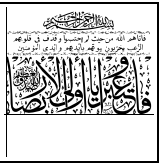 بسم الله الرحمن الرحيم
فاتاهم الله من حيث لم يحتسبوا وقذف في قلوبهم
الرعب يخربون بيوتهم بايديهم وايدي المؤمنين
فاعتبروا يا أولي الأبصار